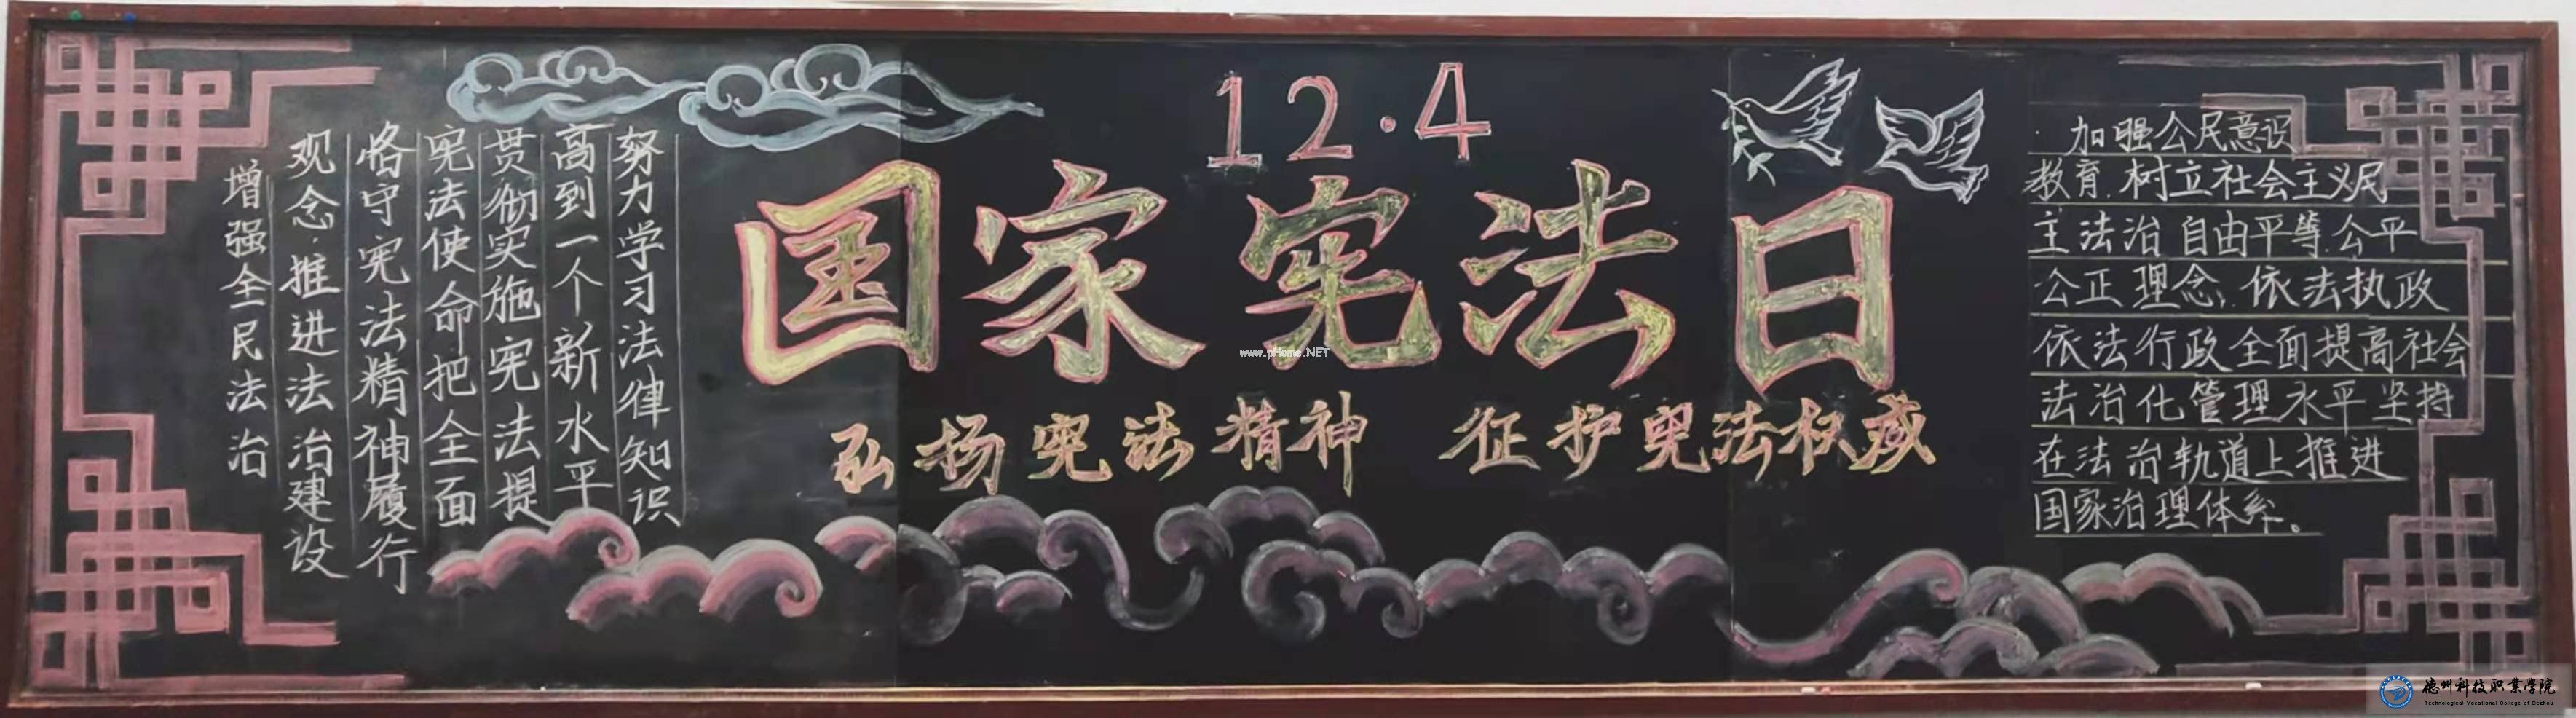 12·4
国家宪法日
弘扬宪法精神 征护宪法权威
增强全民法治
观念,推进法治建设
恪守宪法精神履行
宪法使命把全面
贯彻实施宪法提
高到一个新水平
努力学习法律知识
加强公民意识
教育.树立社会主义民
主法治自由平等.公平
公正理念,依法执政
依法行政全面提高社会
法治化管理水平坚持
在法治轨道上推进
国家治理体系。
www.pHome.NET
德州科技职业学院
Technological Vocational College of Dezhou